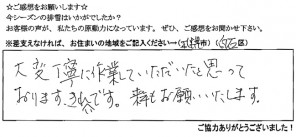 ☆ご感想をお願いします☆
今シーズンの排雪はいかがでしたか？
お客様の声が、私たちの原動力になっています。ぜひ、ご感想をお聞かせ下さい。
※差支えなければ、お住まいの地域をご記入ください→(札幌市)(西区)
大変丁寧に作業していただいたと思って
おります。きれいです。来年もお願いいたします。
ご協力ありがとうございました！